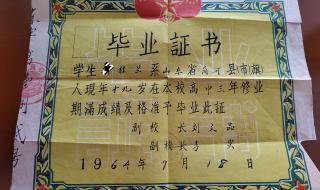 毕业証书
学生 桂兰系山东省 县(市)(旗)
人現年十九岁在本校高中三年修业
期滿成績及格准予毕业此証
副校長刘 品
副校長李
1964年7月18日